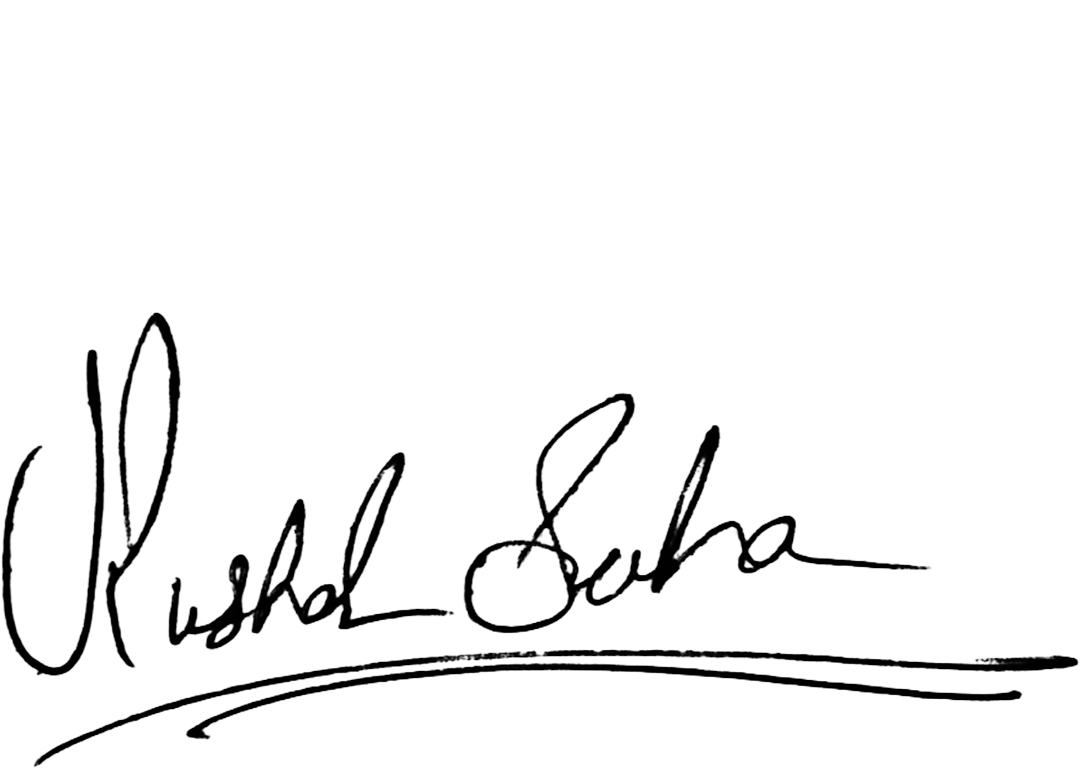 Kushal Saha